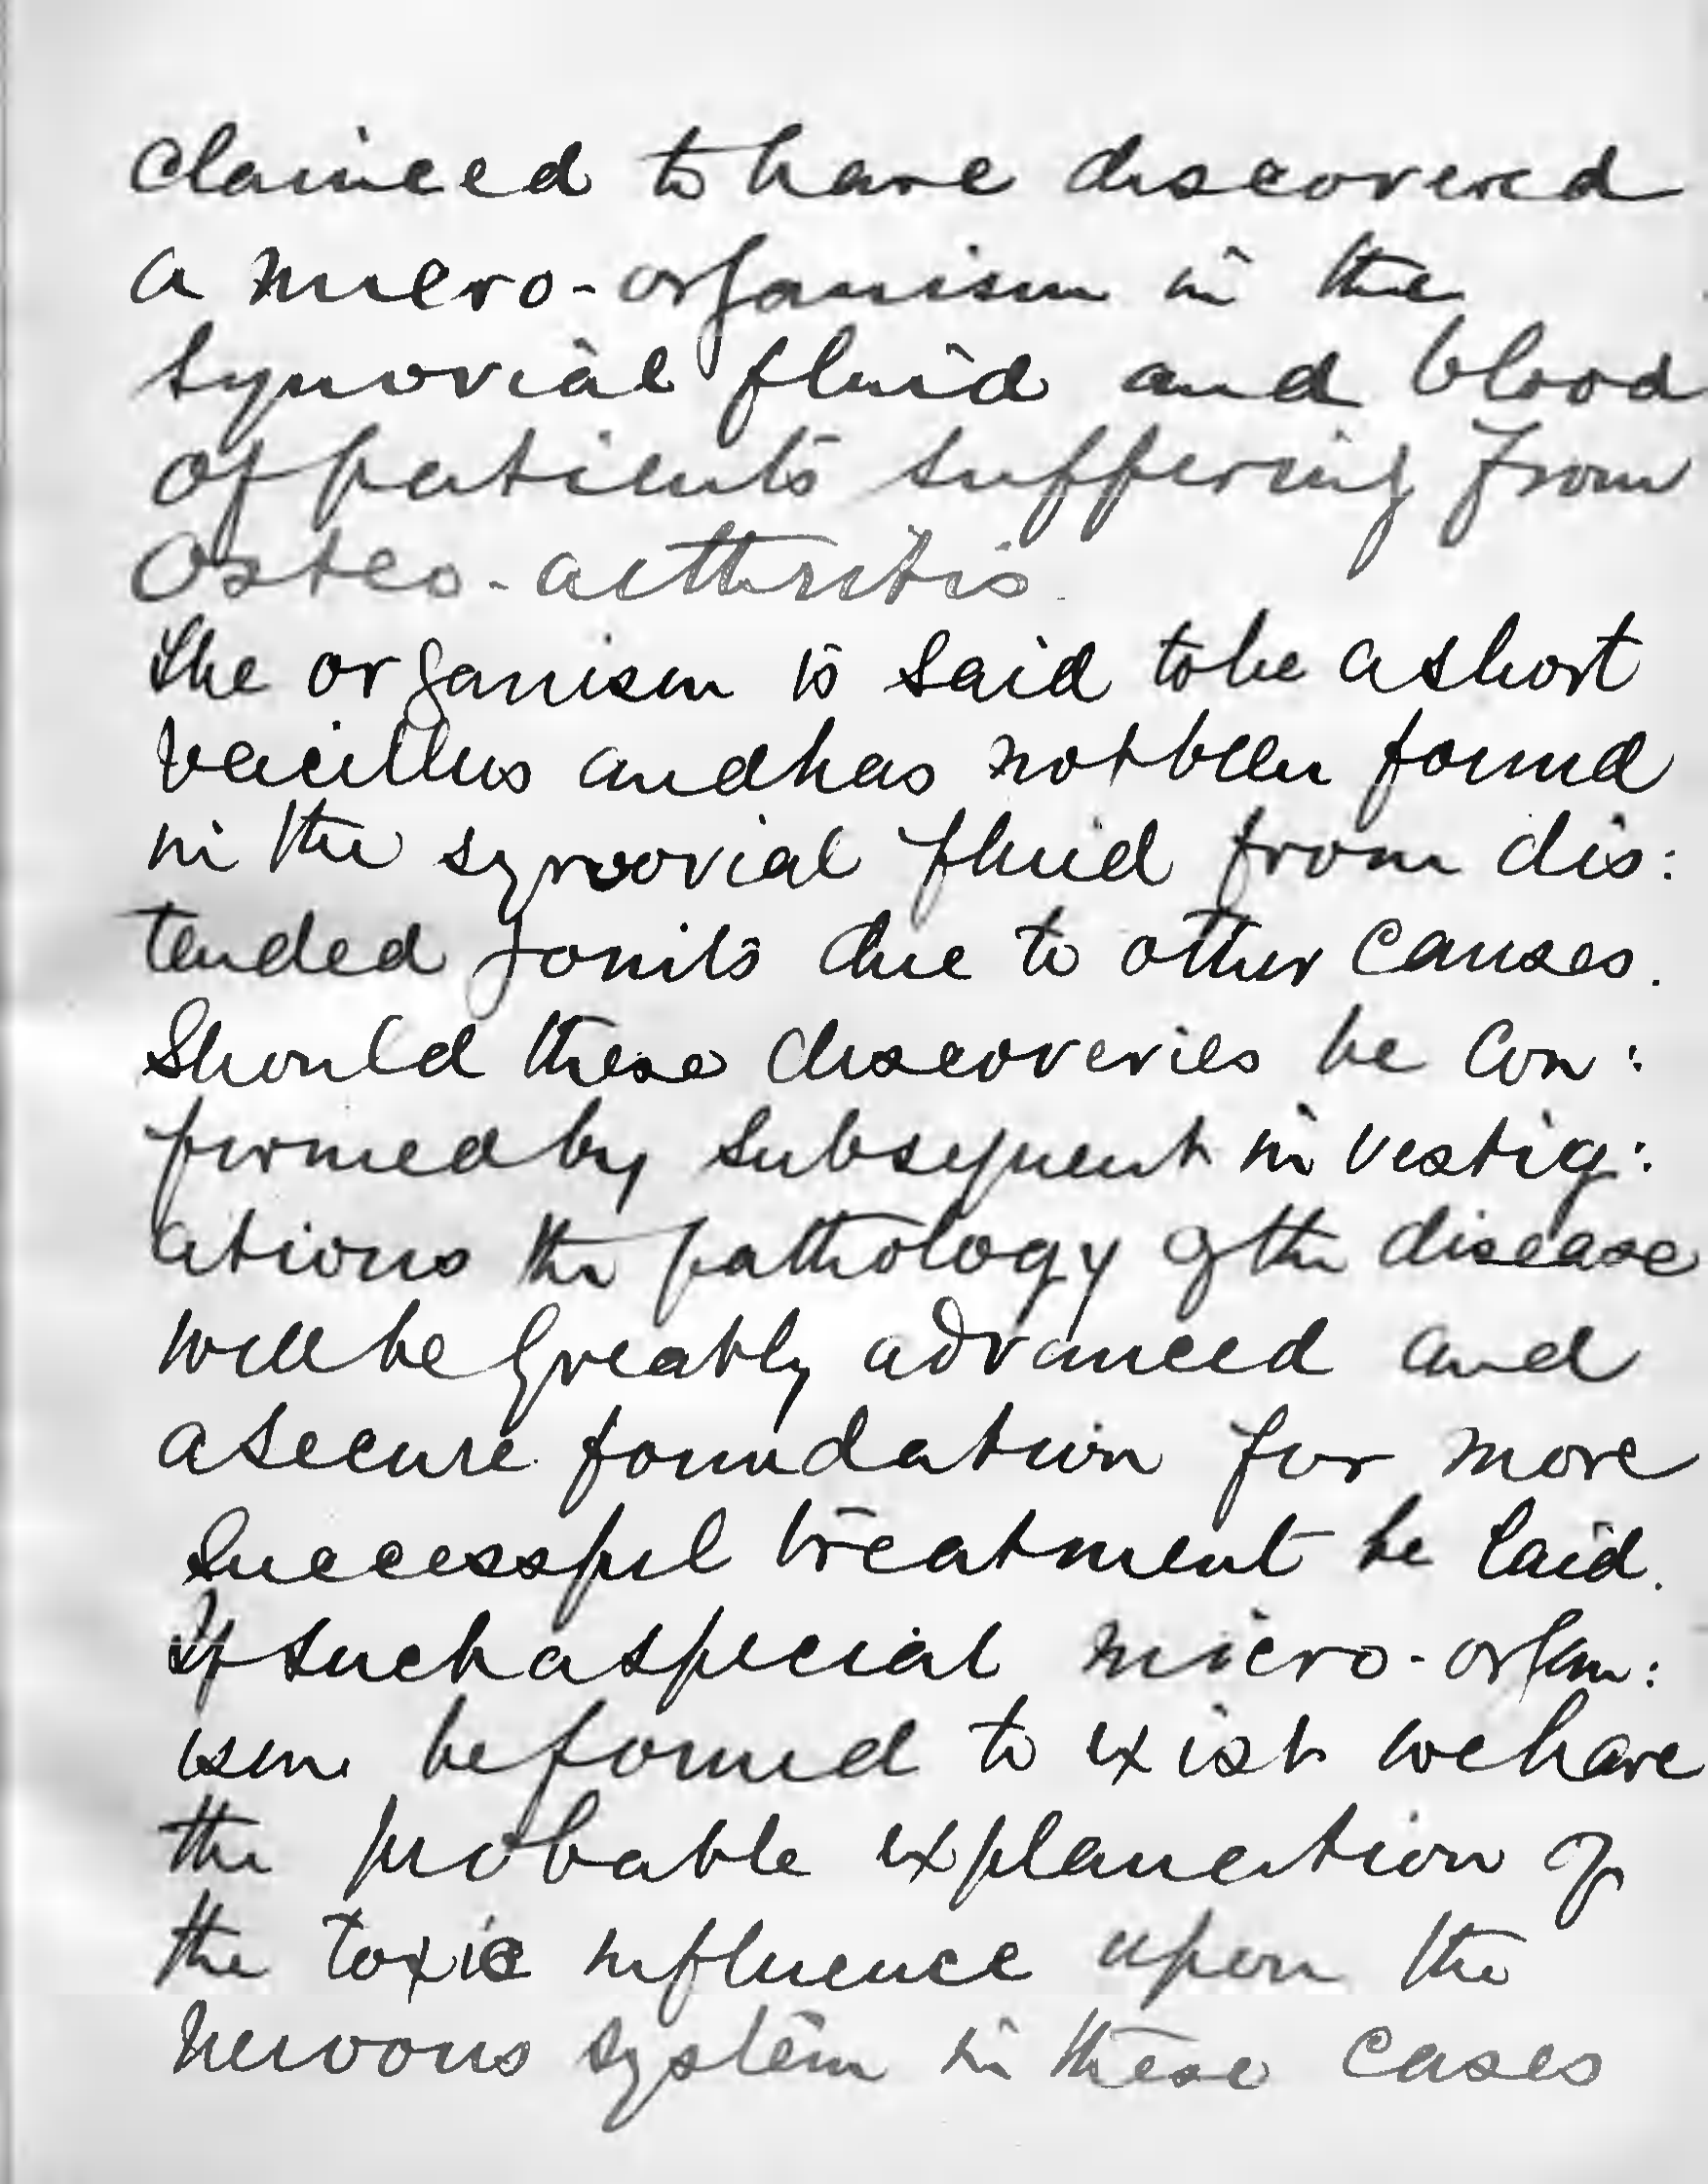 claimed to have discovered
a micro-organism in the
synovial fluid and blood
of patients suffering from
Osteo-arthritis.
The organism is said to be a short
bacillus and has not been found
in the synovial fluid from dis:
tended joints due to other causes.
Should these discoveries be con:
firmed by subsequent investig:
ations the pathology of the disease
will be greatly advanced and
a secure foundation for more
successful treatment be laid.
If such a special micro-organ:
ism be found to exist we have
the probable explanation of
the toxic influence upon the
nervous system in these cases